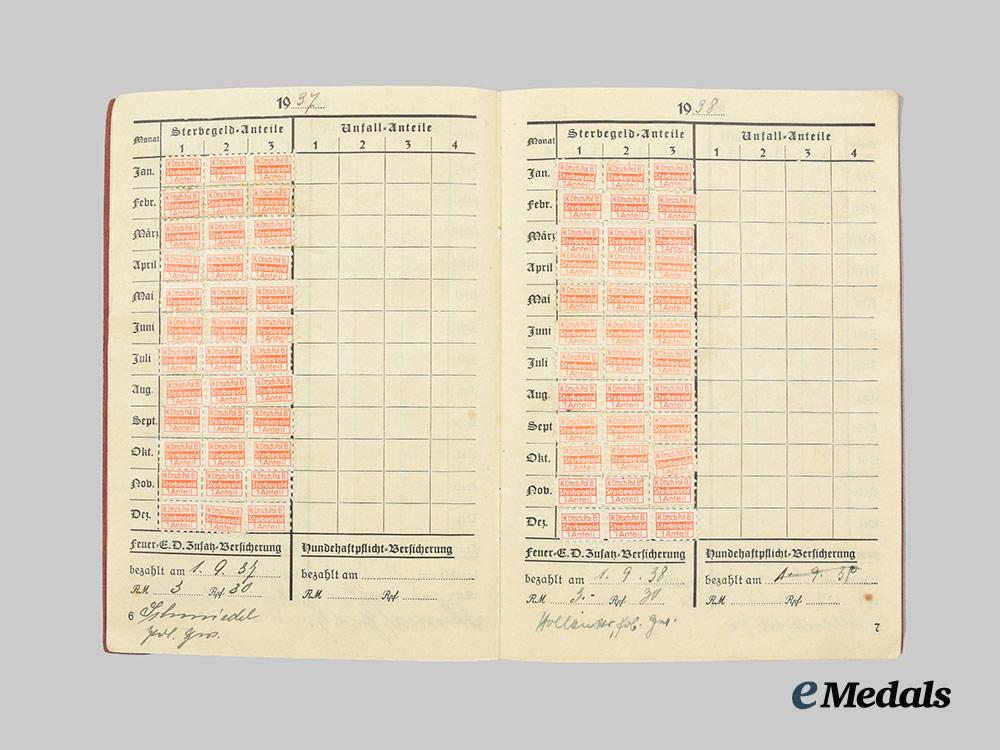 19 37
Monat Sterbegeld-Anteile Unfall-Anteile
1 2 3 1 2 3 4
Jan. K.Dtsch.Pol.B. Sterbegeld 1 Anteil K.Dtsch.Pol.B. Sterbegeld 1 Anteil K.Dtsch.Pol.B. Sterbegeld 1 Anteil
Febr. K.Dtsch.Pol.B. Sterbegeld 1 Anteil K.Dtsch.Pol.B. Sterbegeld 1 Anteil K.Dtsch.Pol.B. Sterbegeld 1 Anteil
März K.Dtsch.Pol.B. Sterbegeld 1 Anteil K.Dtsch.Pol.B. Sterbegeld 1 Anteil K.Dtsch.Pol.B. Sterbegeld 1 Anteil
April K.Dtsch.Pol.B. Sterbegeld 1 Anteil K.Dtsch.Pol.B. Sterbegeld 1 Anteil K.Dtsch.Pol.B. Sterbegeld 1 Anteil
Mai K.Dtsch.Pol.B. Sterbegeld 1 Anteil K.Dtsch.Pol.B. Sterbegeld 1 Anteil K.Dtsch.Pol.B. Sterbegeld 1 Anteil
Juni K.Dtsch.Pol.B. Sterbegeld 1 Anteil K.Dtsch.Pol.B. Sterbegeld 1 Anteil K.Dtsch.Pol.B. Sterbegeld 1 Anteil
Juli K.Dtsch.Pol.B. Sterbegeld 1 Anteil K.Dtsch.Pol.B. Sterbegeld 1 Anteil K.Dtsch.Pol.B. Sterbegeld 1 Anteil
Aug. K.Dtsch.Pol.B. Sterbegeld 1 Anteil K.Dtsch.Pol.B. Sterbegeld 1 Anteil K.Dtsch.Pol.B. Sterbegeld 1 Anteil
Sept. K.Dtsch.Pol.B. Sterbegeld 1 Anteil K.Dtsch.Pol.B. Sterbegeld 1 Anteil K.Dtsch.Pol.B. Sterbegeld 1 Anteil
Okt. K.Dtsch.Pol.B. Sterbegeld 1 Anteil K.Dtsch.Pol.B. Sterbegeld 1 Anteil K.Dtsch.Pol.B. Sterbegeld 1 Anteil
Nov. K.Dtsch.Pol.B. Sterbegeld 1 Anteil K.Dtsch.Pol.B. Sterbegeld 1 Anteil K.Dtsch.Pol.B. Sterbegeld 1 Anteil
Dez. K.Dtsch.Pol.B. Sterbegeld 1 Anteil K.Dtsch.Pol.B. Sterbegeld 1 Anteil K.Dtsch.Pol.B. Sterbegeld 1 Anteil
Feuer-E.D.Zusatz-Versicherung Hundehaftpflicht-Versicherung
bezahlt am 1. 9. 37 bezahlt am
RM 3 Rpf 30 RM Rpf
6 Schmiedel
19 38
Monat Sterbegeld-Anteile Unfall-Anteile
1 2 3 1 2 3 4
Jan. K.Dtsch.Pol.B. Sterbegeld 1 Anteil K.Dtsch.Pol.B. Sterbegeld 1 Anteil K.Dtsch.Pol.B. Sterbegeld 1 Anteil
Febr. K.Dtsch.Pol.B. Sterbegeld 1 Anteil K.Dtsch.Pol.B. Sterbegeld 1 Anteil K.Dtsch.Pol.B. Sterbegeld 1 Anteil
März K.Dtsch.Pol.B. Sterbegeld K.Dtsch.Pol.B. Sterbegeld K.Dtsch.Pol.B. Sterbegeld
April K.Dtsch.Pol.B. Sterbegeld 1 Anteil K.Dtsch.Pol.B. Sterbegeld 1 Anteil K.Dtsch.Pol.B. Sterbegeld 1 Anteil
Mai K.Dtsch.Pol.B. Sterbegeld 1 Anteil K.Dtsch.Pol.B. Sterbegeld 1 Anteil K.Dtsch.Pol.B. Sterbegeld 1 Anteil
Juni K.Dtsch.Pol.B. Sterbegeld 1 Anteil K.Dtsch.Pol.B. Sterbegeld 1 Anteil K.Dtsch.Pol.B. Sterbegeld 1 Anteil
Juli K.Dtsch.Pol.B. Sterbegeld 1 Anteil K.Dtsch.Pol.B. Sterbegeld 1 Anteil K.Dtsch.Pol.B. Sterbegeld 1 Anteil
Aug. K.Dtsch.Pol.B. Sterbegeld 1 Anteil K.Dtsch.Pol.B. Sterbegeld 1 Anteil K.Dtsch.Pol.B. Sterbegeld 1 Anteil
Sept. K.Dtsch.Pol.B. Sterbegeld 1 Anteil K.Dtsch.Pol.B. Sterbegeld 1 Anteil K.Dtsch.Pol.B. Sterbegeld 1 Anteil
Okt. K.Dtsch.Pol.B. Sterbegeld 1 Anteil K.Dtsch.Pol.B. Sterbegeld 1 Anteil K.Dtsch.Pol.B. Sterbegeld 1 Anteil
Nov. K.Dtsch.Pol.B. Sterbegeld 1 Anteil K.Dtsch.Pol.B. Sterbegeld 1 Anteil K.Dtsch.Pol.B. Sterbegeld 1 Anteil
Dez. K.Dtsch.Pol.B. Sterbegeld 1 Anteil K.Dtsch.Pol.B. Sterbegeld 1 Anteil K.Dtsch.Pol.B. Sterbegeld 1 Anteil
Feuer-E.D.Zusatz-Versicherung Hundehaftpflicht-Versicherung
bezahlt am 1. 9. 38 bezahlt am
RM 3.- Rpf 30 RM Rpf
7
eMedals